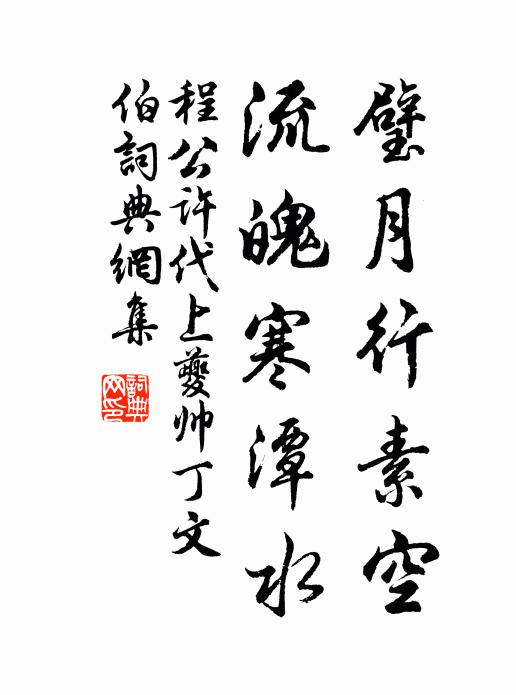 璧月行素空
流魄寒潭水
程公许代上夔帅丁文
伯詞典網集
詞典
网印